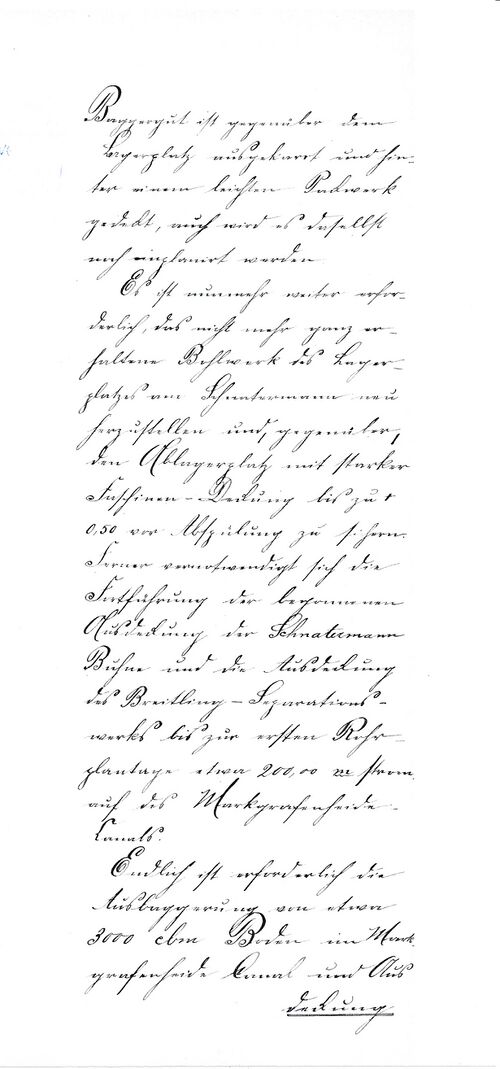 Baggergut ist gegenüber dem
Lagerplatz ausgekarrt und hin-
ter einem leichten Pakwerk
gedekt, auch wird es daselbst
noch einplanirt werden
Es ist nunmehr weiter erfor-
derlich, das nicht mehr ganz er-
haltene Bohlwerk des Lager-
platzes am Schnatermann neu
herzustellen und, gegenüber,
den Ablagerplatz mit starker
Faschinen-Deckung bis zu +
0,50 vor Abspülung zu sichern.
Ferner vernotwendigt sich die
Fortführung der begonnenen
Ausdeckung der Schnatermann
Buhne und die Ausdeckung
des Breitling-Separations-
werks bis zur ersten Rohr-
plantage etwa 200,00 m strom
auf des Markgrafenheide-
Canals.
Endlich ist erforderlich die
Ausbaggerung von etwa
3000 cbm Boden im Mark
grafenheide Canal und Aus
deckung